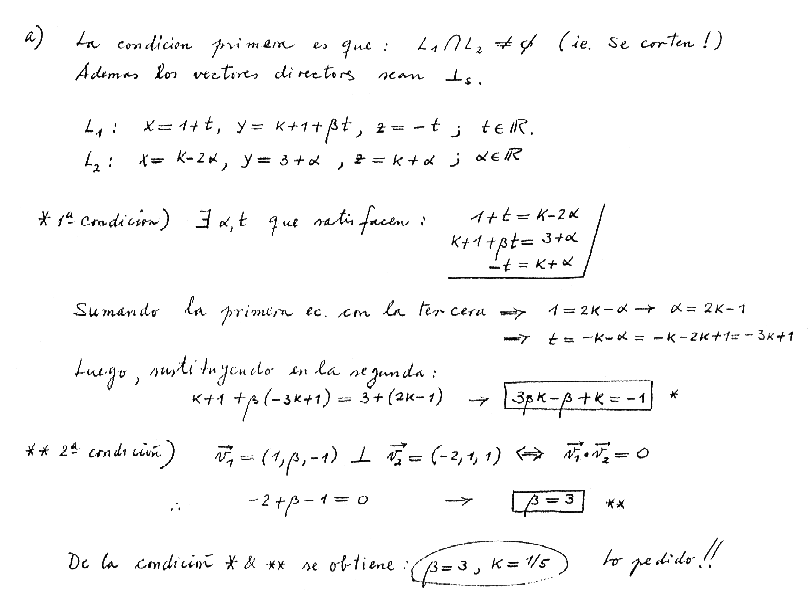 a) La condicion primera es que : L₁∩L₂ ≠ ∅ (ie. Se corten!)
Ademas los vectores directores sean ⊥s.
L₁ : x = 1+t, y = k+1+βt, z = -t ; t∈ℝ.
L₂ : x = k-2α, y = 3+α , z = k+α ; α∈ℝ
* 1ª condición) ∃ α,t que satisfacen : 1+t = k-2α
k+1+βt = 3+α
-t = k+α
Sumando la primera ec. con la tercera → 1 = 2k-α → α = 2k-1
→ t = -k-α = -k-2k+1 = -3k+1
Luego, sustituyendo en la segunda :
k+1 +β(-3k+1) = 3+(2k-1) → 3βk-β+k = -1 *
** 2ª condición) v₁ = (1,β,-1) ⊥ v₂ = (-2,1,1) ⇔ v₁·v₂ = 0
∴ -2+β-1 = 0 → β = 3 **
De la condición * & ** se obtiene : β = 3 , k = 1/5 lo pedido!!